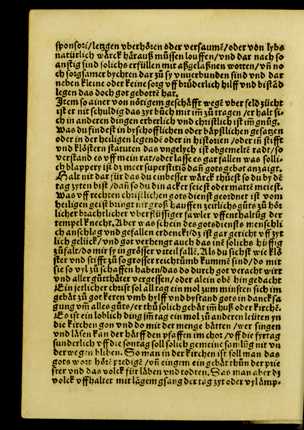 sponsori/letzgen vberhören oder versaumē/oder von lybs
natürlich wärck haruß müssen louffen/vnd dar nach so
wärdend sind solichs erfüllen mit außgelaßnen wortten/vn̄ no
ch sorgsamer bychten dar zů sy vnuerbunden sind vnd dar
neben kleine oder keine sorg vff brüderlich hilff vnd bistäd
legen das doch got gebotē har.
Item so ainer von nötigem geschäfft wegē vber feld zücht
ist er nit schuldig das zyt bůch mit im̄ zů tragen/er halt si
ch in anderen dingen erberlich vnd christlich ist im̄ gnůg.
Was du findest in byschofflichen oder bäpstlichen gesatzen
oder in der heiligen legende oder in historien/oder in stifft
vnd klöstern statuten das vngelych ist obgemeltē radt/so
verstand es vff mein rat/oder lasse es gar fallen was solli
ch blappery ist/dz meer superstitio dan̄ gots gebot anzaigt.
Halt nit dar für das du ein besser wärck thüest so du by dē
tag zyten bist/dan̄ so du bin acker seiest oder mattē meiest.
Was vff rechten christlichen gots dienst geordnet ist vom
heiligen geist bringt nit groß hauffen zeitlichs gůts zů hōf
licher brachtlicher vberflüssiger fawler vffenthaltūg der
tempel knecht. Aber was schein des gots diensts menschli
ch anschleg vnd gefallen erdenckē/dz ist gar gericht vff zyt
lich gelück/vnd got verhengt auch das inē solichs hüffig
zůfalt/do mit sy in grösser vrteil fallē. Als du sichst wie klö
ster vnd stifft zů so grosser reichtumb kummē sind/do mit
sie so vyl zů schaffen haben/das do durch got veracht wirt
vnd aller gůtthäter vergessen/oder alein obē hin gedacht
Ein ierlicher christ sol all tag ein mol zum minsten sich im
gebät zů got keren vmb hylff vnd bystand gots in dancksa
gung vm̄ alles gůts/er thů solich gebät im̄ huß oder kirchē.
Es ist ein loblich ding im̄ tag ein mol zů anderen leüten yn
die kirchen gon vnd do mit der menge bätten/wer singen
vnd läsen kan der hälff den pfaffen im chor/vff die fyrtag
sunderlich vff die sontag soll solich gemein samlūg nit vn
der wegen bliben. So man in der kirchen ist soll man das
gots wort hörē predigē/vn̄ eingem ein gebät thůn der prie
ster vnd das volck für läben vnd todten. Das man aber dz
volck vffhalter mit lägem gsang der tag zyt oder vylämp-